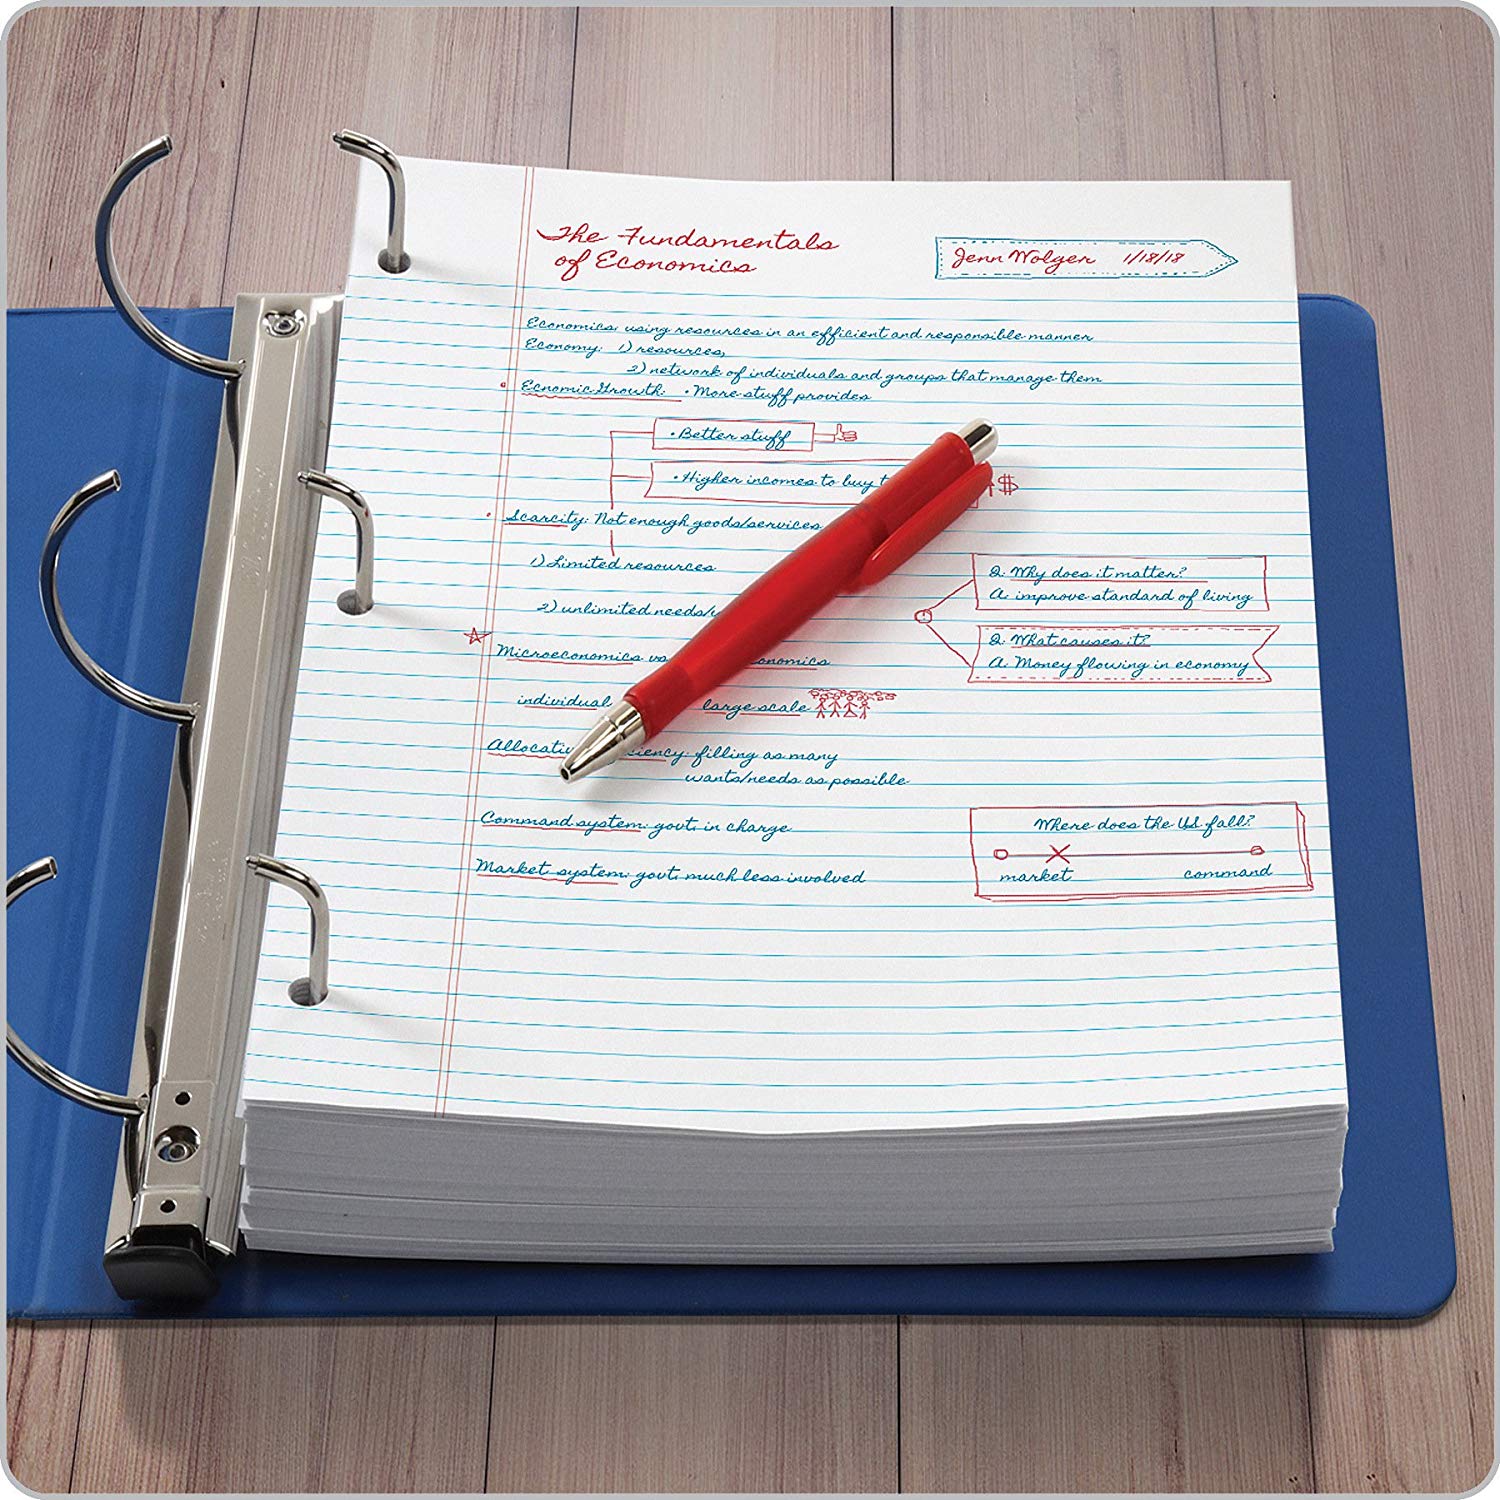 The Fundamentals
of Economics
Jenn Wolger 1/18/18
Economics: using resources in an efficient and responsible manner
Economy: 1) resources,
2) network of individuals and groups that manage them
Ecnomic Growth: • More stuff provides
• Better stuff
• Higher incomes to buy
$
Scarcity: Not enough goods/services
1) Limited resources
2) unlimited needs/
Q: Why does it matter?
A: improve standard of living
Q: What causes it?
A: Money flowing in economy
Microeconomics vs
individual large scale
filling as many
wants/needs as possible
Command system: govt. in charge
Market system: govt. much less involved
Where does the US fall?
market command